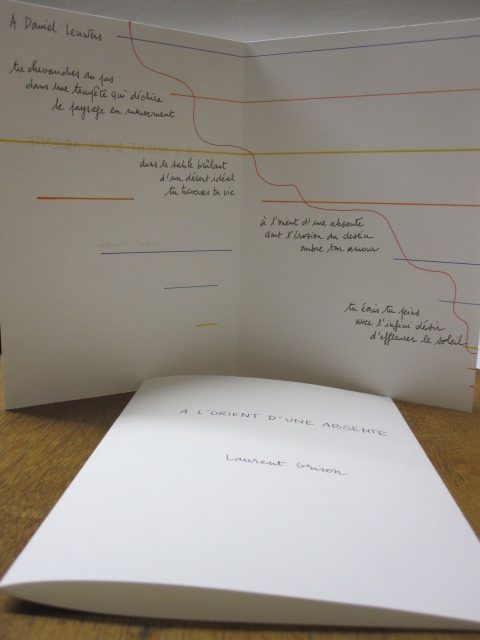 A Daniel Leuwers
tu chevauches au pas
dans une tempête qui déchire
le paysage en mouvement
dans le sable brûlant
d'un désert idéal
tu traverses ta vie
à l'orient d'une absente
dont l'érosion du destin
ombre ton amour
tu écris tu peins
avec l'infini désir
d'effleurer le soleil
A L'ORIENT D'UNE ABSENTE
Laurent Grison